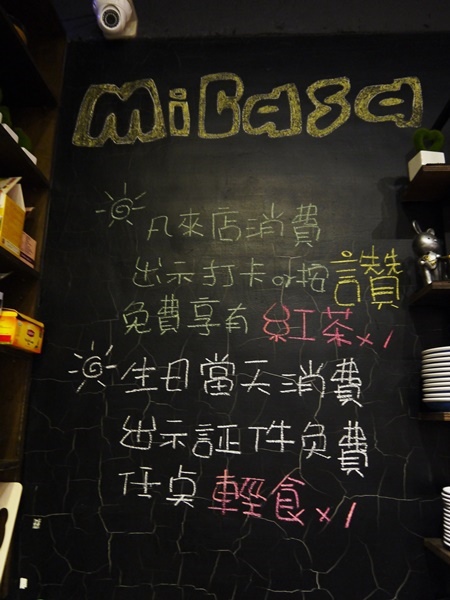 MiCasa
凡來店消費
出示打卡or按讚
免費享有 紅茶x1
生日當天消費
出示証件免費
任桌 輕食x1